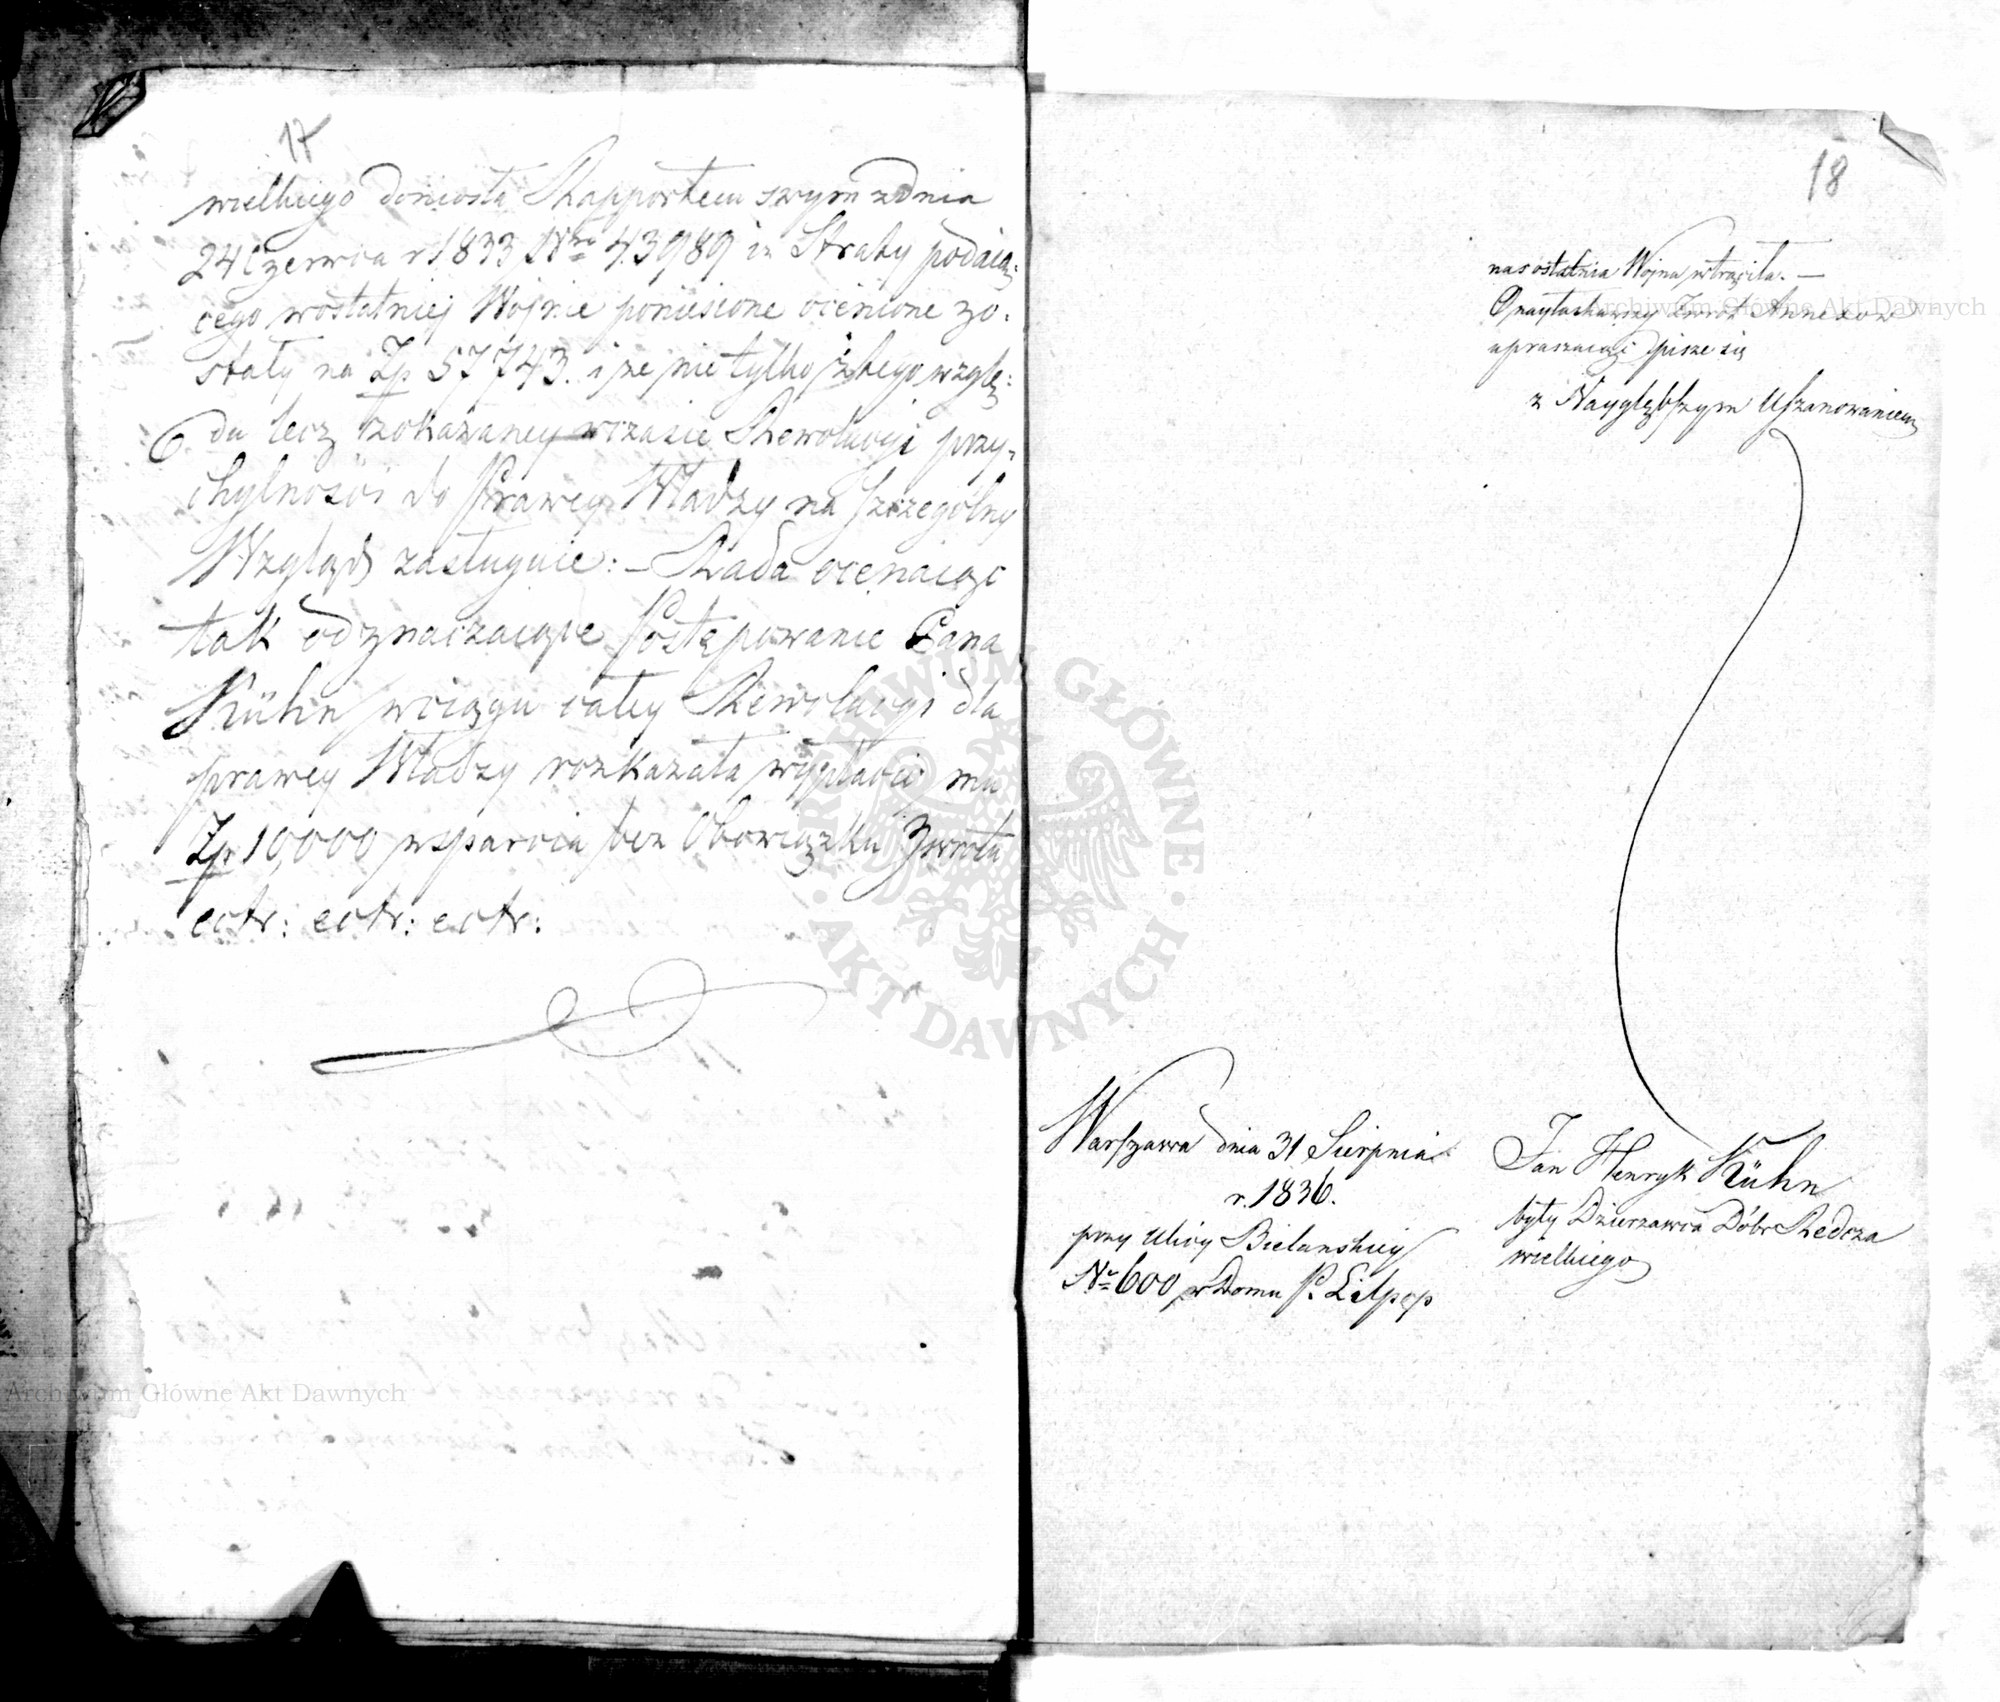 17
wielkiego doniosła Rapportem swym z dnia
24 Czerwca r 1833 Nro 43989 iż Straty podaią:
cego w ostatniej Wojnie poniesione ocenione zo.
stały na Zp 57743. i że nie tylko z tego wzglę:
du lecz z okazaney w czasie Rewolucyi przy,
chylności do Prawey Władzy na szczególny
Wzgląd zasługuie: – Rada oceniaiąc
tak odznaczaiące Postępowanie Pana
Kühn w ciągu całey Rewolucyi dla
prawey Władzy rozkazała wypłacić mu
Zp 10,000 wsparcia bez Obowiązku Zwrotu
ectr: ectr: ectr:
18
nas ostatnia Wojna wtrąciła. —
O nayłaskawszy Zwrot Annexow
upraszaiąc pisze się
z Naygłębszym Uszanowaniem
Warszawa dnia 31 Sierpnia
r. 1836.
przy Ulicy Bielanskiey
No 600 w Domu P. Lilpop
Jan Henryk Kühn
były Dzierzawca Dóbr Redcza
wielkiego
Archiwum Główne Akt Dawnych
Archiwum Główne Akt Dawnych
ARCHIWUM GŁÓWNE
AKT DAWNYCH